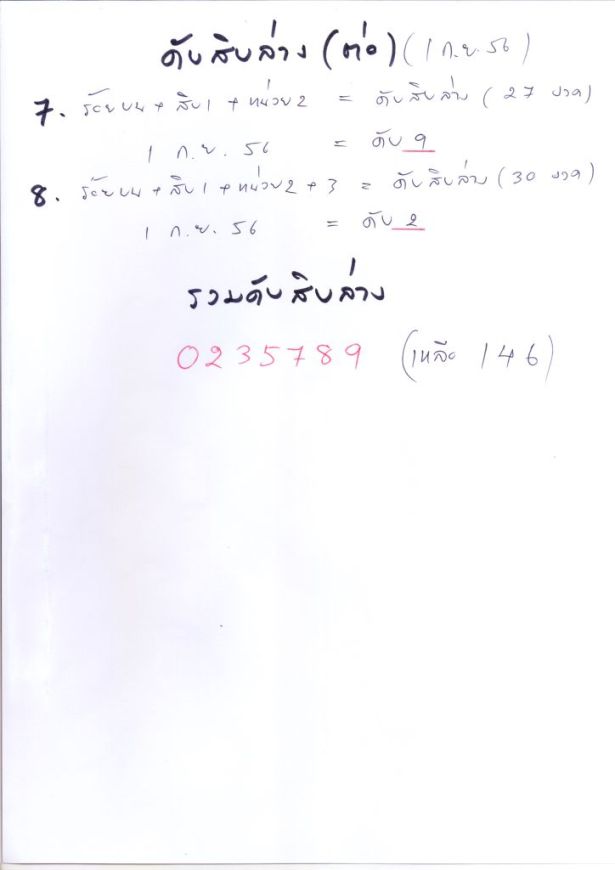 ดับสิบล่าง (ต่อ) (1 ก.ย. 56)
7. ร้อยบน + สิบ1 + หน่วย2 = ดับสิบล่าง (27 งวด)
1 ก.ย. 56 = ดับ 9
8. ร้อยบน + สิบ1 + หน่วย2 + 3 = ดับสิบล่าง (30 งวด)
1 ก.ย. 56 = ดับ 2
รวมดับสิบล่าง
0235789 (เหลือ 146)